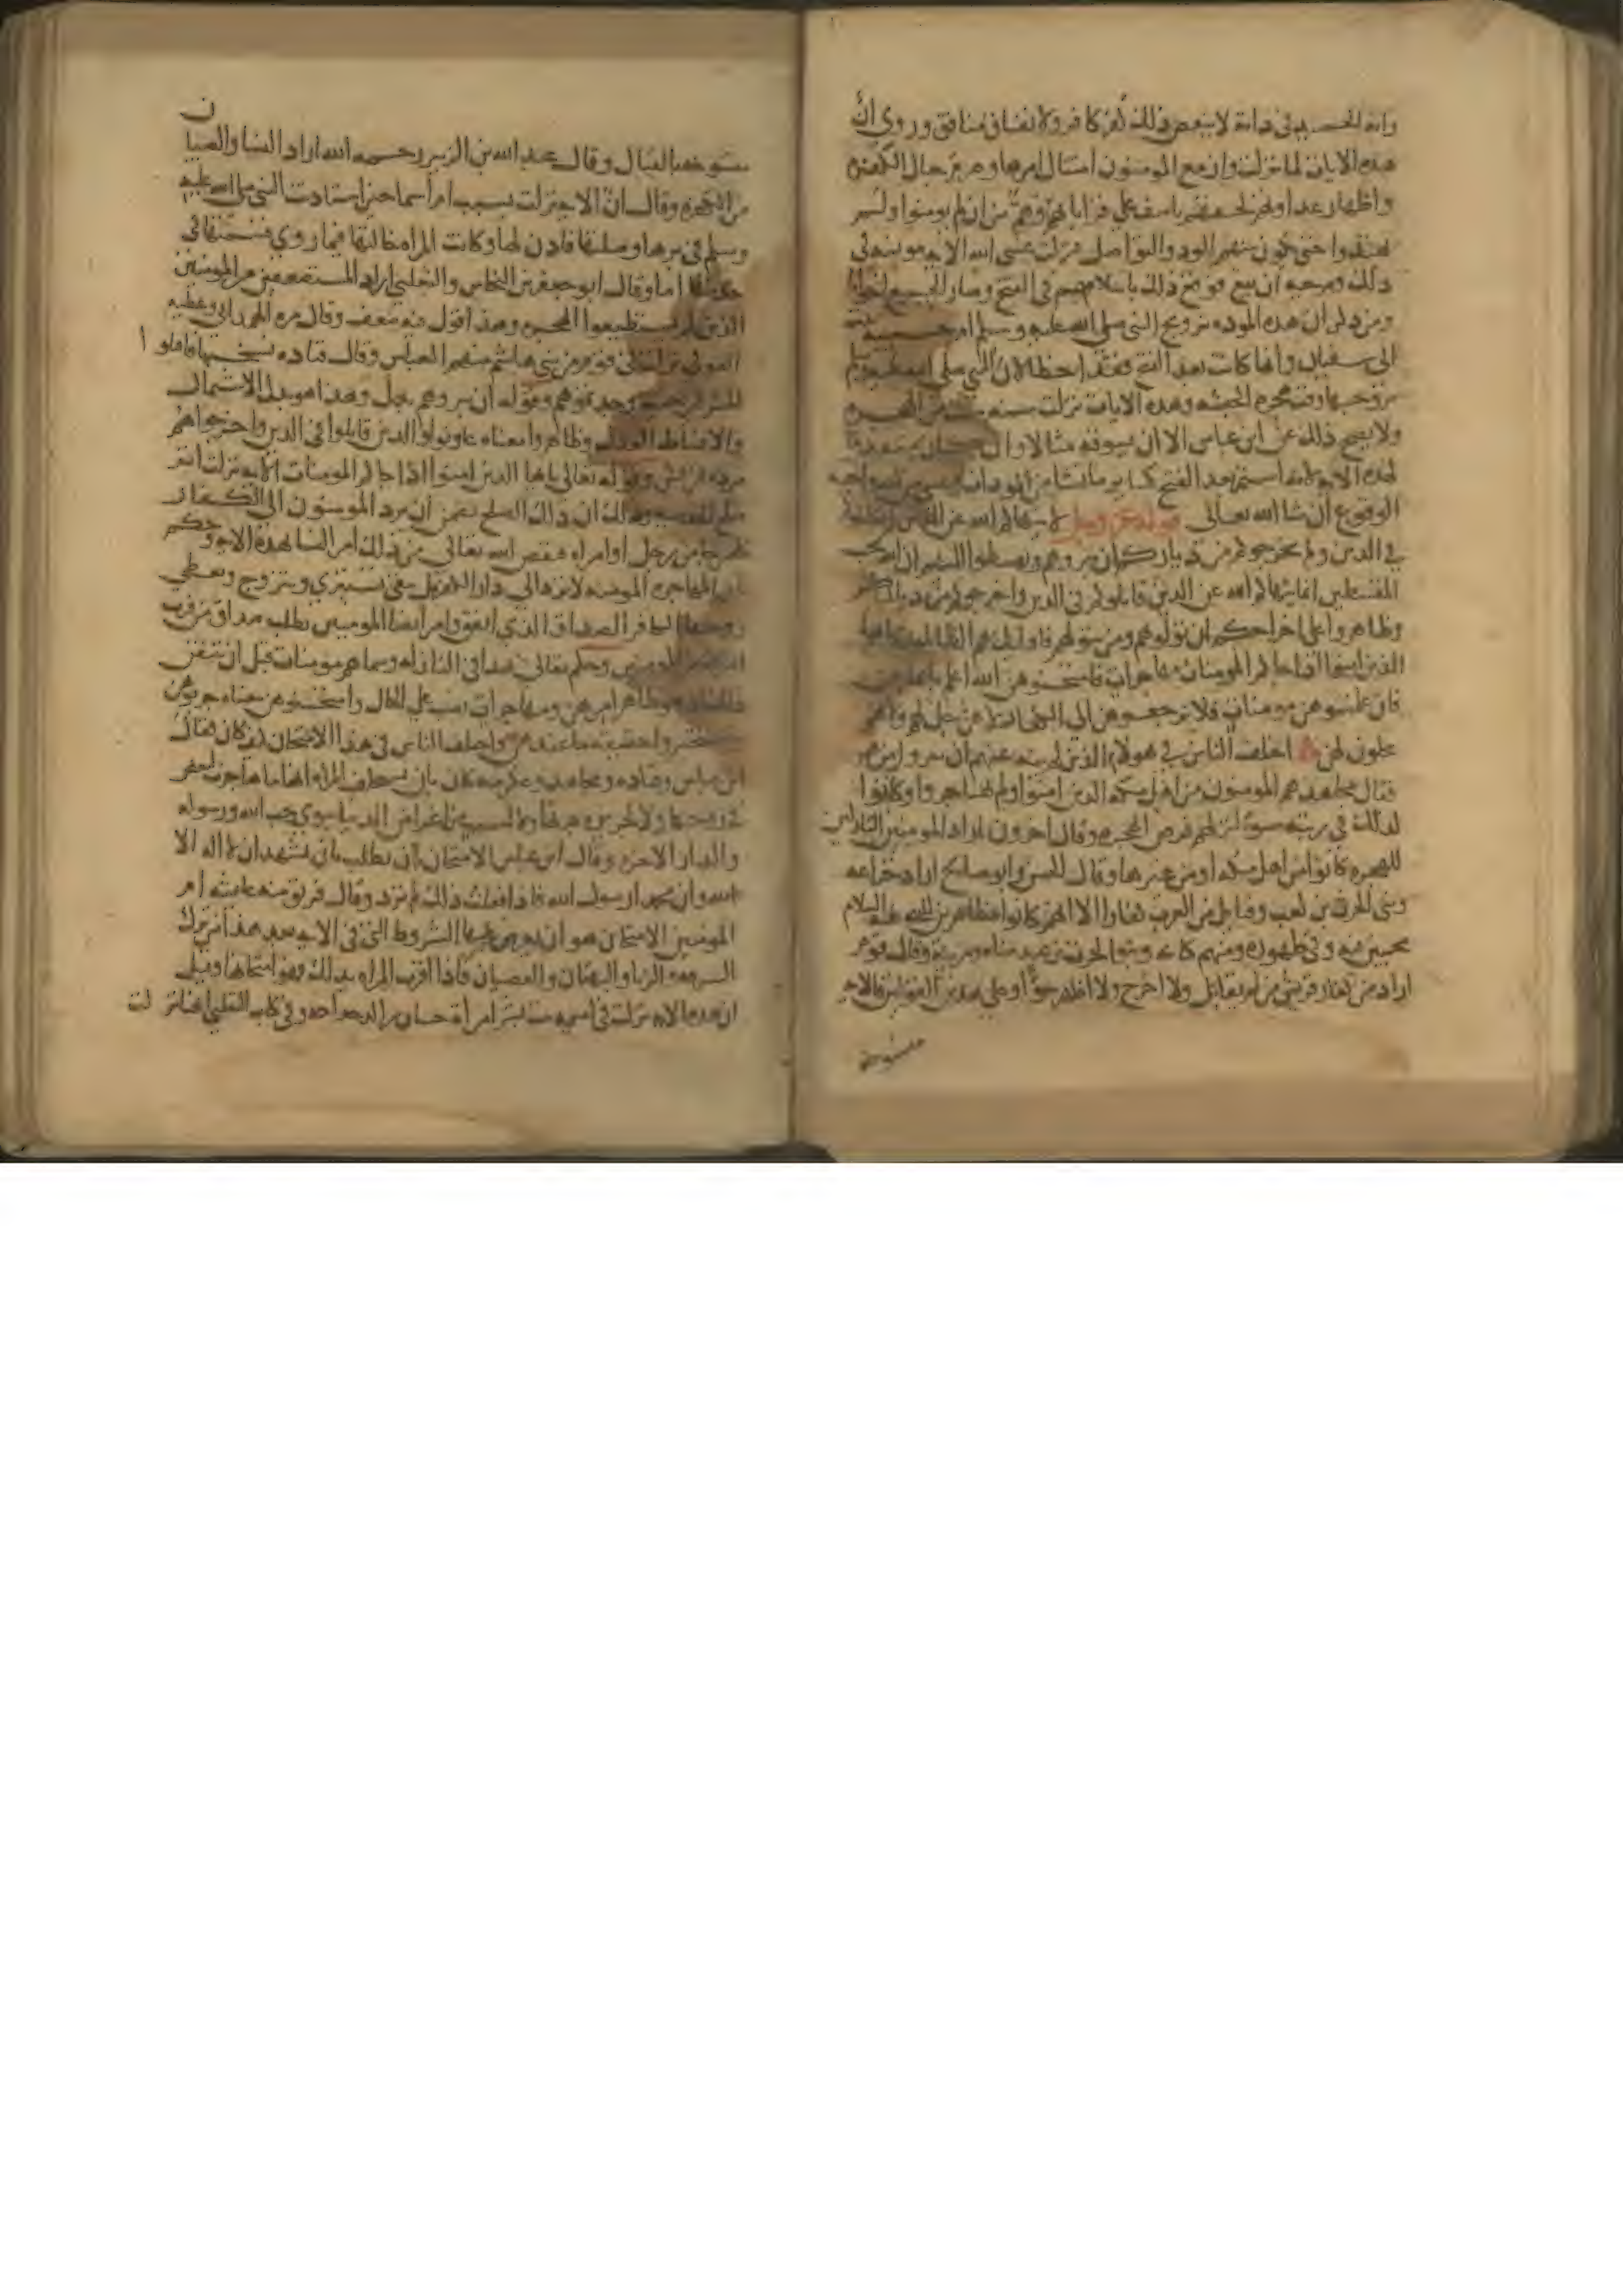 وانه الحميد في ذاته لا ينقص ذلك كفر كافر ولا نفاق منافق وروي ان
هذه الايات لما نزلت وازمع المومنون امتثال امرها وصرم حبال الكفرة
واظهار عداوتهم لحقهم تاسف على قراباتهم وهم من ان لم يومنوا ولم
يهتدوا حتى يكون بينهم الود والتواصل فنزلت عسى الله الاية مونسة في
ذلك ومرجية ان يقع فوقع ذلك باسلامهم في الفتح وصار الجميع اخوانا
ومن ذكر ان هذه المودة تزويج النبي صلى الله عليه وسلم ام حبيبة
ابي سفيان وانها كانت بعد الفتح فقد اخطا لان النبي صلى الله عليه وسلم
تزوجها وقت هجرة الحبشة وهذه الايات نزلت سنة ست من الهجرة
ولا يصح ذلك عن ابن عباس الا ان يسوقه مثالا وان كان متقدما
لهذه الاية لانه استمر بعد الفتح كساير ما نشا من المودات وعسى من الله واجبة
الوقوع ان شا الله تعالى قوله عز وجل لا ينهاكم الله عن الذين لم يقاتلوكم
في الدين ولم يخرجوكم من دياركم ان تبروهم وتقسطوا اليهم ان الله يحب
المقسطين انما ينهاكم الله عن الذين قاتلوكم في الدين واخرجوكم من دياركم
وظاهروا على اخراجكم ان تولوهم ومن يتولهم فاوليك هم الظالمون يا ايها
الذين امنوا اذا جاكم المومنات مهاجرات فامتحنوهن الله اعلم بايمانهن
فان علمتموهن مومنات فلا ترجعوهن الى الكفار لا هن حل لهم ولا هم
يحلون لهن اختلف الناس في هولاء الذين لم ينه عنهم ان يبروا من هم
فقال مجاهد هم المومنون من اهل مكة الذين امنوا ولم يهاجروا وكانوا
لذلك في رتبة سوء لتركهم فرض الهجرة وقال اخرون اراد المومنين التاركين
للهجرة كانوا من اهل مكة او من غيرها وقال الحسن وابو صالح اراد خزاعة
وبني الحرث بن كعب وقبايل من العرب كفارا الا انهم كانوا مظاهرين للنبي عليه السلام
محبين فيه وفي ظهوره ومنهم كنانة وبنو الحرث بن عبد مناة ومزينة وقال قوم
اراد من كفار قريش من لم يقاتل ولا اخرج ولا اظهر سوءا وعلى هذين القولين فالاية
منسوخة
منسوخة بالقتال وقال عبد الله بن الزبير رحمه الله اراد النسا والصبيان
من الكفرة وقال ان الاية نزلت بسبب ام اسما حين استاذنت النبي صلى الله عليه
وسلم في برها وصلتها فاذن لها وكانت المراة خالتها فيما روي فسمتها في
حديثها اما وقال ابو جعفر بن النحاس والثعلبي اراد المستضعفين من المومنين
الذين لم يستطيعوا الهجرة وهذا قول فيه ضعف وقال مرة الهمداني وعطية
العوفي نزلت في قوم من بني هاشم منهم العباس وقال قتادة نسختها فاقتلوا
المشركين حيث وجدتموهم وقوله ان تبروهم بدل وهذا هو بدل الاشتمال
والاقساط العدل وظاهروا معناه عاونوا والذين قاتلوا في الدين واخرجوا هم
مردة قريش وقوله تعالى يا ايها الذين امنوا اذا جاكم المومنات الاية نزلت اثر
صلح الحديبية وذلك ان ذلك الصلح تضمن ان يرد المومنون الى الكفار
كل من جا من رجل او امراة فنقض الله تعالى من ذلك امر النسا بهذه الاية وحكم
بان المهاجرة المومنة لا ترد الى دار الكفر بل تبقى تستبري وتتزوج ويعطى
زوجها الكافر الصداق الذي انفق وامر ايضا المومنين بطلب صداق من فرت
امراته من المومنين وحكم تعالى بهذا في النازلة وسماهم مومنات قبل ان يتيقن
ذلك اذ هو ظاهر امرهن ومهاجرات نصب على الحال وامتحنوهن معناه جربوهن
واختبروا حقيقة ما عندهن واختلف الناس في هذا الامتحان كيف كان فقال
ابن عباس وقتادة ومجاهد وعكرمة كان بان تستحلف المراة انها ما هاجرت لبغض
في زوجها ولا لجريرة جرتها ولا لسبب من اغراض الدنيا سوى حب الله ورسوله
والدار الاخرة وقال ابن عباس الامتحان ان يطلب بان تشهد ان لا اله الا
الله وان محمدا رسول الله فاذا فعلت ذلك لم ترد وقال فريق منهم عايشة ام
المومنين الامتحان هو ان تعرض عليها الشروط التي في الاية بعد هذا من ترك
السرقة والزنا والبهتان والعصيان فاذا اقرت المراة بذلك فهو امتحانها وقيل
ان هذه الاية نزلت في اميمة بنت بشر امراة حسان بن الدحداحة وفي كتاب الثعلبي انها نزلت